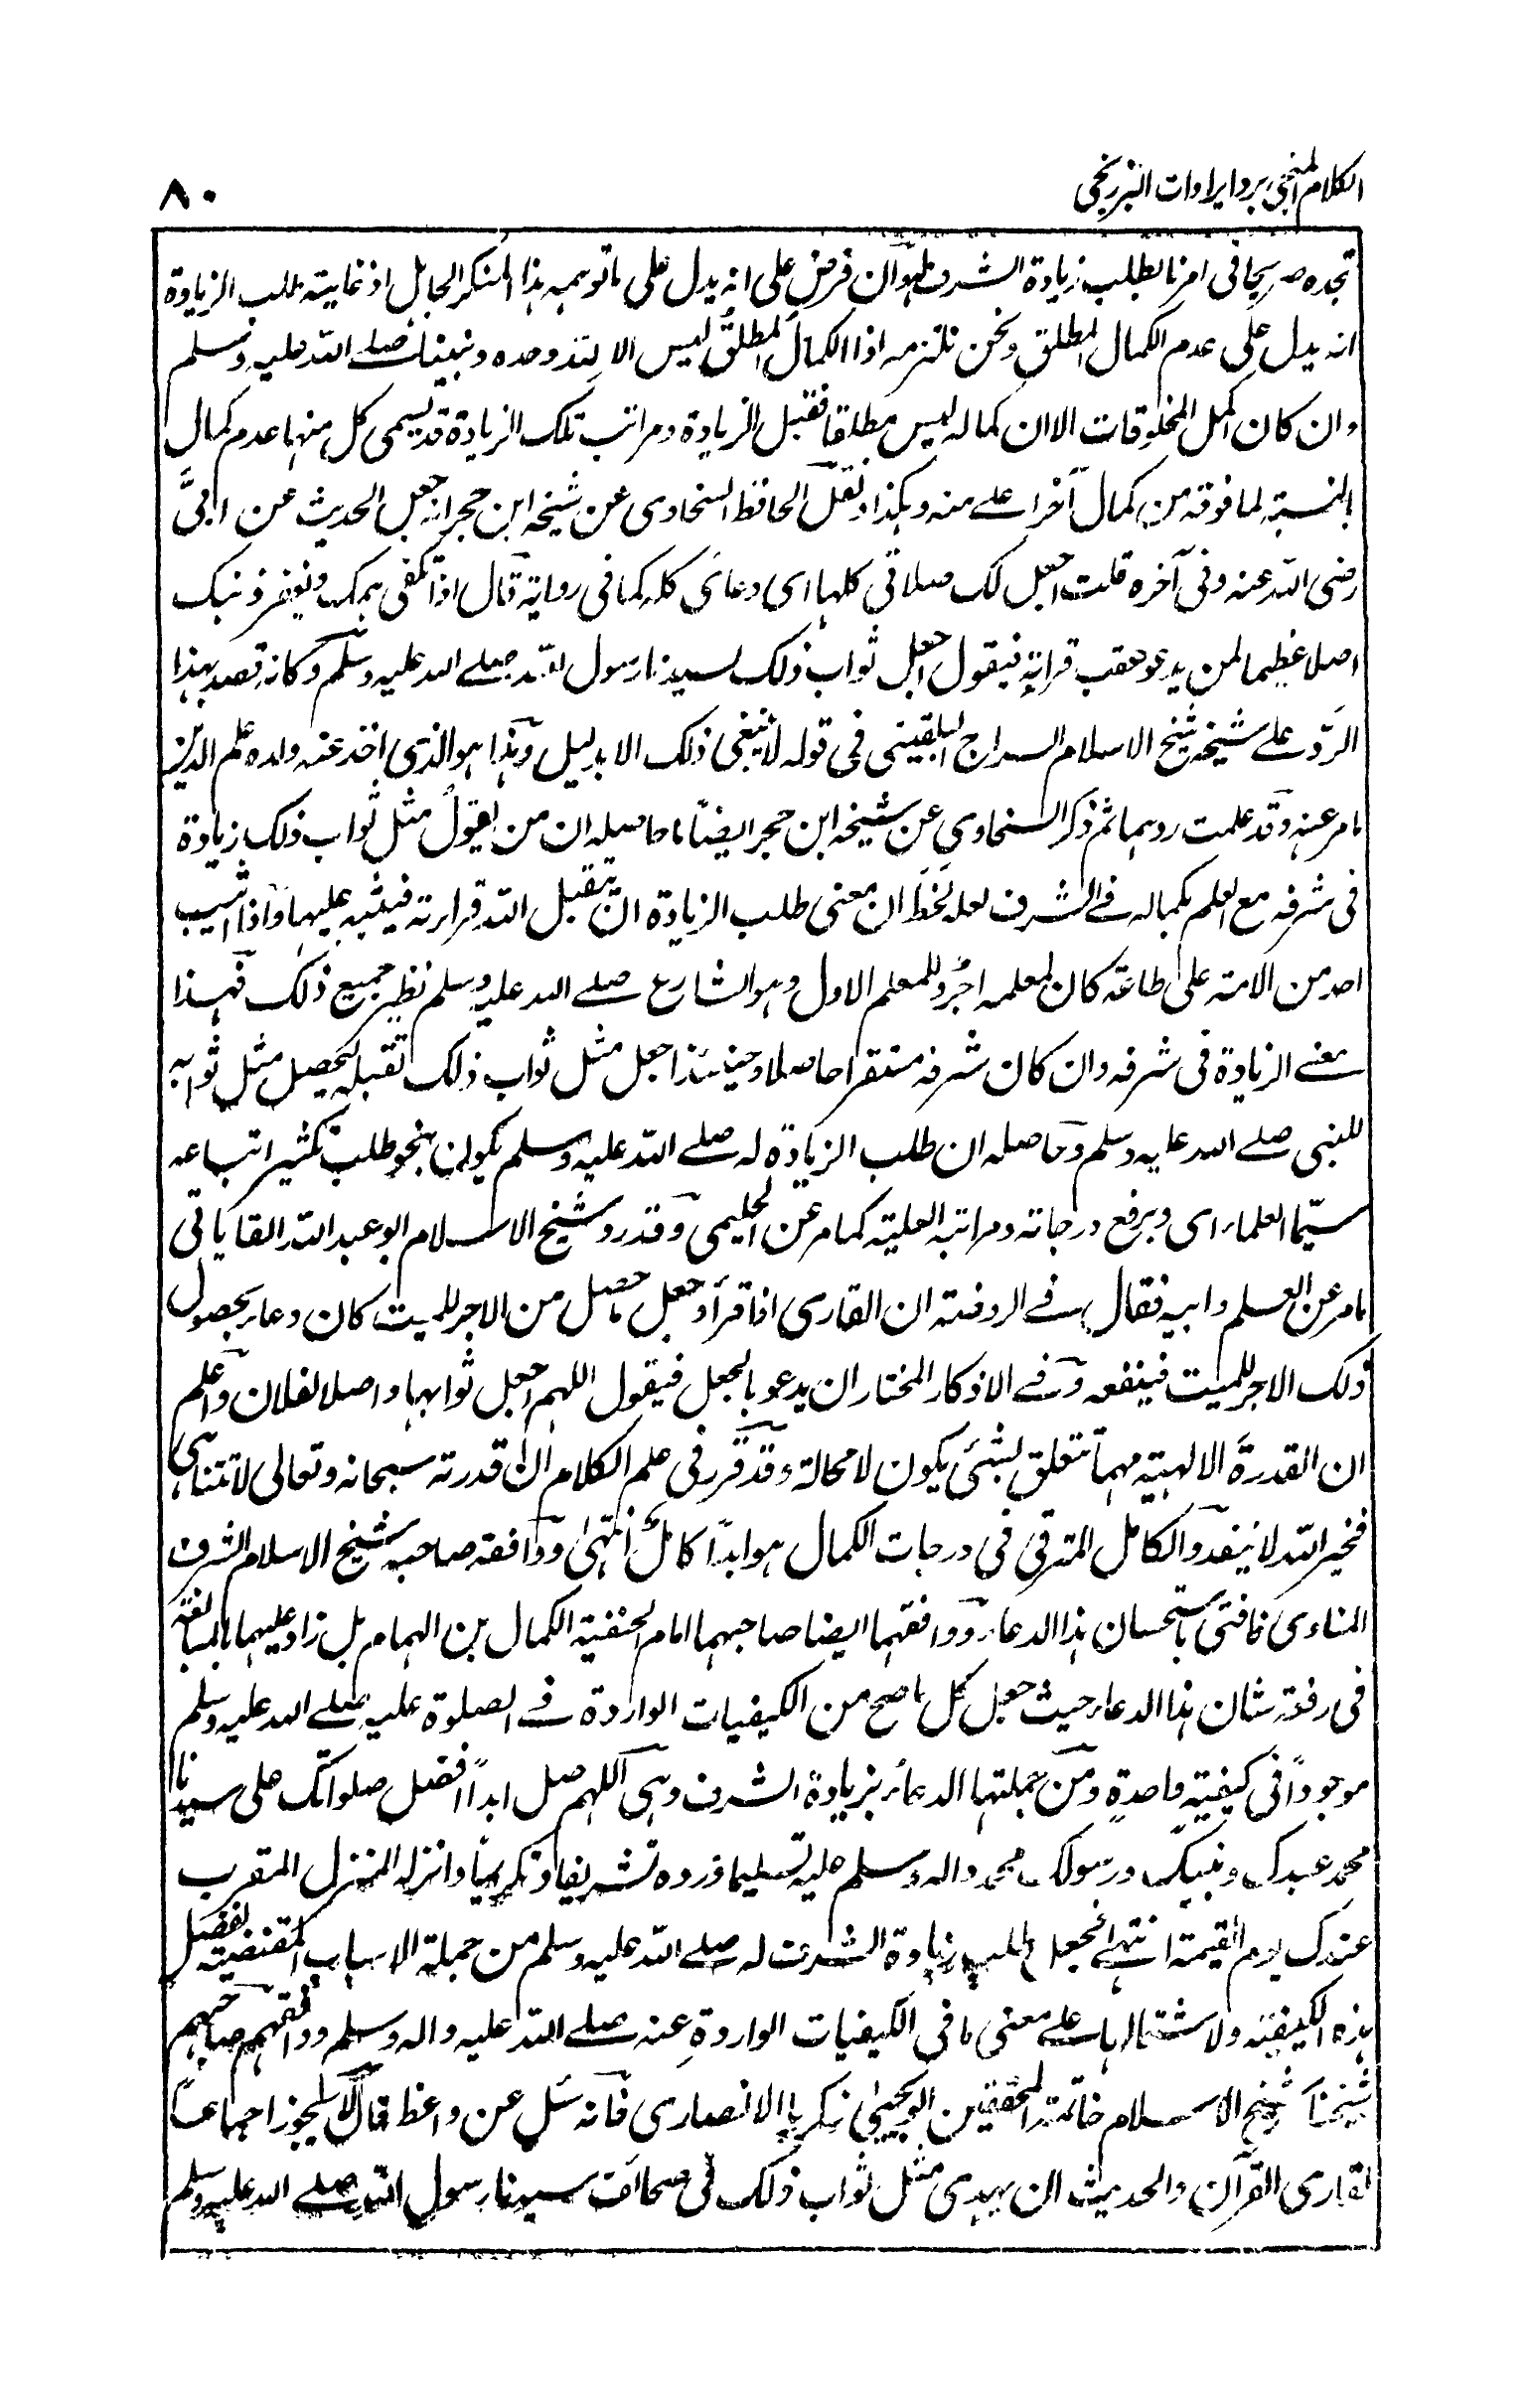 الكلام المنجي برد ايرادات البرزنجي
٨٠
تجده صريحا في امرنا بطلب زيادة الشرف له وان فرض على انه يدل على ما توهمه هذا المنكر الجاهل اذ غايته طلب الزيادة
انه يدل على عدم الكمال المطلق ونحن نلتزمه اذ الكمال المطلق ليس الا لله وحده ونبينا صلى الله عليه وسلم
وان كان اكمل المخلوقات الا ان كماله ليس مطلقا فقبل الزيادة ومراتب تلك الزيادة قد يسمى كل منها عدم كمال
بالنسبة لما فوقه من كمال آخر اعلى منه وهكذا ونقل الحافظ السخاوى عن شيخه ابن حجر انه جعل الحديث عن ابىّ
رضى الله عنه وفى آخره قلت اجعل لك صلاتى كلها اى دعائى كله كما فى رواية قال اذا تكفى همك ويغفر ذنبك
اصلا عظيما لمن يدعو عقب قراته فيقول اجعل ثواب ذلك لسيدنا رسول الله صلى الله عليه وسلم وكانه قصد بهذا
الردّ على شيخه شيخ الاسلام السراج البلقينى فى قوله لا ينبغى ذلك الا بدليل وهذا هو الذى اخذ عنه ولده علم الدين
ما مر عنه وقد علمت ردهما ثم ذكر السخاوى عن شيخه ابن حجر ايضاً ما حاصله ان من يقول مثل ثواب ذلك زيادة
فى شرفه مع العلم بكماله فى الشرف لعله لحظ ان معنى طلب الزيادة ان يتقبل الله قراءته فيثيبه عليها واذا اثيب
احد من الامة على طاعة كان لمعلمه اجرٌ وللمعلم الاول وهو الشارع صلى الله عليه وسلم نظير جميع ذلك فهذا
معنى الزيادة فى شرفه وان كان شرفه مستقرا حاصلا وحينئذ اجعل مثل ثواب ذلك تقبله ليحصل مثل ثوابه
للنبى صلى الله عليه وسلم وحاصله ان طلب الزيادة له صلى الله عليه وسلم يكون بنحو طلب تكثير اتباعه
سيّما العلماء اى وبرفع درجاته ومراتبه العلية كما مر عن الحليمى وقد رد شيخ الاسلام ابو عبد الله القاياتى
ما مر عن العلم وابيه فقال فى الروضة ان القارى اذا قرأ وجعل ما حصل من الاجر للميت كان دعاء بحصول
ذلك الاجر للميت فينفعه وفى الاذكار المختار ان يدعو بالجعل فيقول اللهم اجعل ثوابها واصلا لفلان واعلم
ان القدرة الالهية مهما تتعلق بشئ يكون لا محالة وقد قرر فى علم الكلام ان قدرته سبحانه وتعالى لا تتناهى
فخير الله لا ينفد والكامل المترقى فى درجات الكمال هو ابداً كاملٌ انتهى ووافقه صاحبه شيخ الاسلام الشرف
المناوى فافتى باستحسان هذا الدعاء ووافقهما ايضا صاحبهما امام الحنفية الكمال بن الهمام بل زاد عليهما بالمبالغة
فى رفعة شان هذا الدعاء حيث جعل كل ما صح من الكيفيات الواردة فى الصلوة عليه صلى الله عليه وسلم
موجوداً فى كيفية واحدةٍ ومن جملتها الدعاء بزيادة الشرف وهى اللهم صل ابداً افضل صلواتك على سيدنا
محمد عبدك ونبيك ورسولك محمد واله وسلم عليه تسليما وزده تشريفا وتكريماً وانزله المنزل المقرب
عندك يوم القيمة انتهى فجعل طلب زيادة الشرف له صلى الله عليه وسلم من جملة الاسباب المقتضية لفضل
هذه الكيفية ولاشتمالها على معنى ما فى الكيفيات الواردةِ عنه صلى الله عليه واله وسلم ووافقهم صاحبهم
شيخنا شيخ الاسلام خاتمة المحققين ابو يحيىٰ زكريا الانصارى فانه سئل عن واعظ قال لا يجوز اجماعاً
لقارى القرآن والحديث ان يهدى مثل ثواب ذلك فى صحائف سيدنا رسول الله صلى الله عليه وسلم